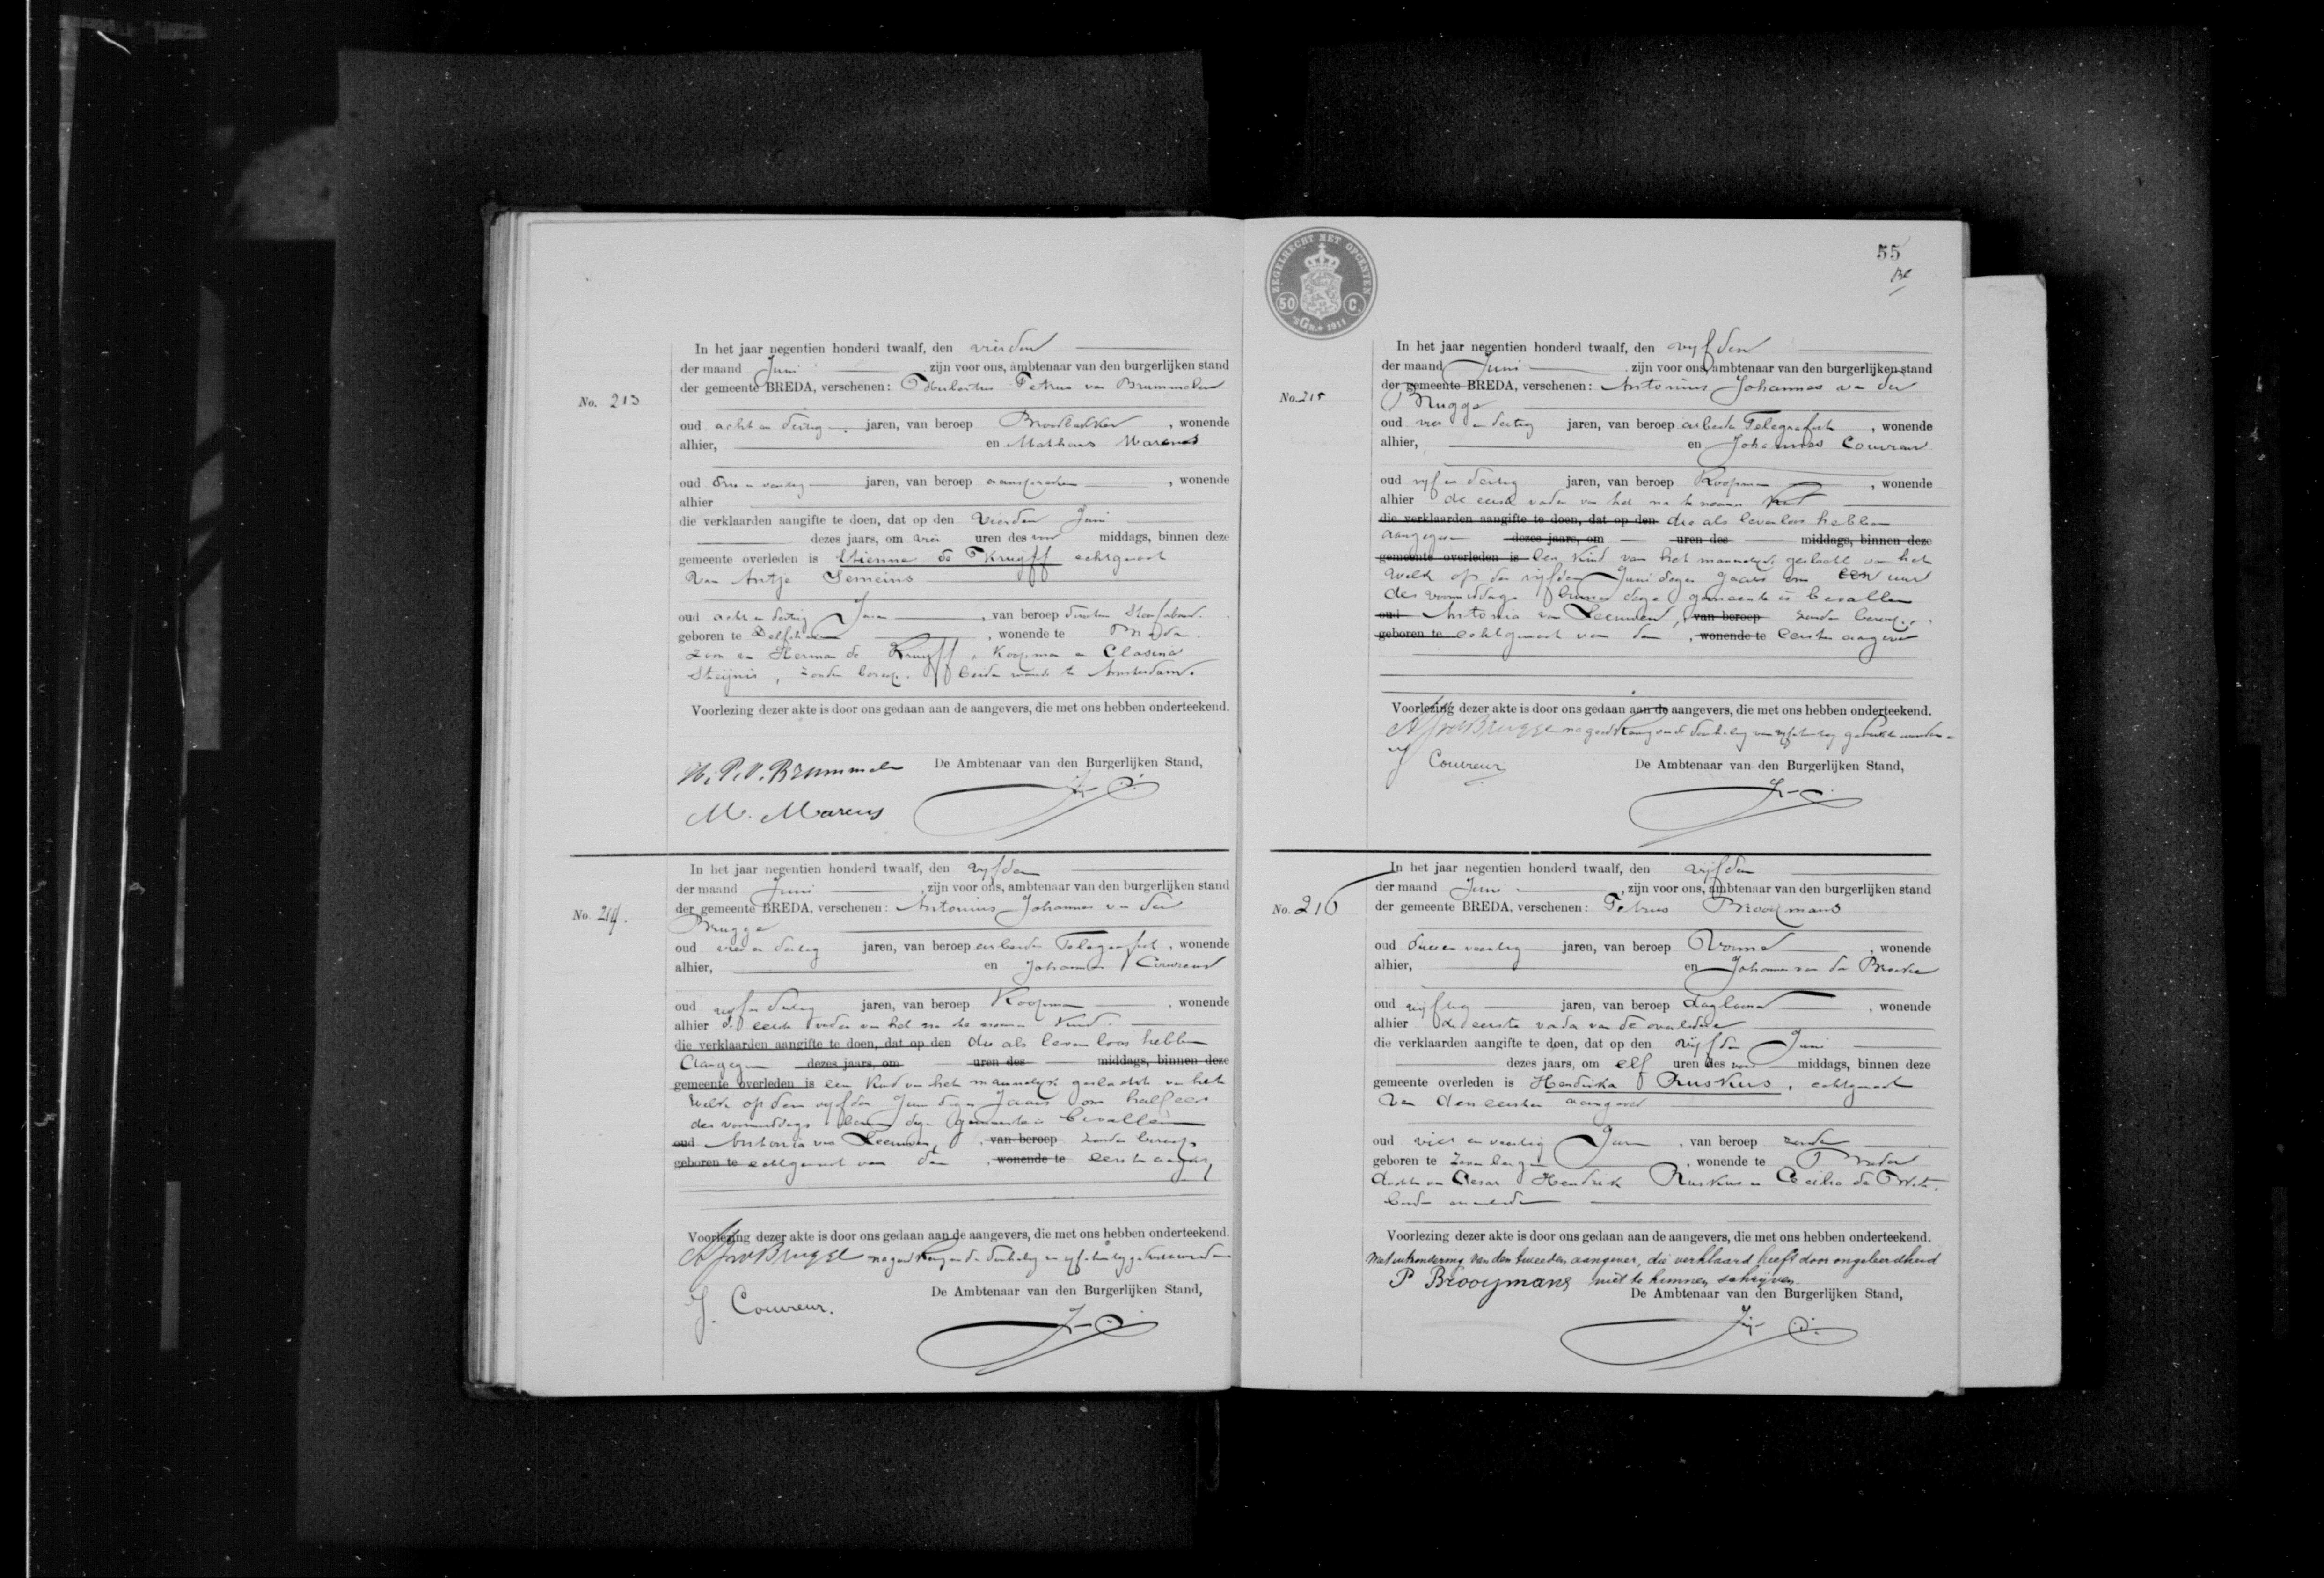 In het jaar negentien honderd twaalf, den vierden
der maand Juni , zijn voor ons, ambtenaar van den burgerlijken stand
der gemeente BREDA, verschenen: Petrus van Brummelen
No. 213
oud acht en dertig jaren, van beroep Broodbakker , wonende
alhier, en Mathaus Marcus
oud drie en veertig jaren, van beroep aanspreker , wonende
alhier
die verklaarden aangifte te doen, dat op den Vierden Juni
dezes jaars, om vier uren des voor middags, binnen deze
gemeente overleden is Etienne de Kruijff echtgenoot
van Antje Semeins
oud acht en dertig Jaren , van beroep
geboren te Delfshaven , wonende te Breda
zoon van Herman de Kruijff, Koopman en Clasina
Steijnis, zonder beroep, beiden wonende te Amsterdam.
Voorlezing dezer akte is door ons gedaan aan de aangevers, die met ons hebben onderteekend.
H. P. v. Brummelen De Ambtenaar van den Burgerlijken Stand,
M. Marcus
In het jaar negentien honderd twaalf, den vyfden
der maand Juni , zijn voor ons, ambtenaar van den burgerlijken stand
No. 214. der gemeente BREDA, verschenen: Antonius Johannes van der
Brugge
oud vier en dertig jaren, van beroep arbeider Telegrafist , wonende
alhier, en Johannes Couvreur
oud vyf en dertig jaren, van beroep Koopman , wonende
alhier de eerste vader van het na te noemen Kind.
die verklaarden aangifte te doen, dat op den die als levenloos hebben
Aangegeven dezes jaars, om uren des middags, binnen deze
gemeente overleden is een Kind van het mannelyk geslacht van het
welk op den vyfden Juni dezes Jaars om half een
des voormiddags binnen deze gemeente is bevallen
oud Antonia van Leeuwen, van beroep zonder beroep
geboren te echtgenoot van den , wonende te eersten aangever
Voorlezing dezer akte is door ons gedaan aan de aangevers, die met ons hebben onderteekend.
A J vd Brugge na goedkeuring van de doorhaling van vyf
De Ambtenaar van den Burgerlijken Stand,
J. Couvreur.
ZEGELRECHT MET OPCENTEN
50 C.
'sGR. 1911
55
In het jaar negentien honderd twaalf, den vyfden
der maand Juni , zijn voor ons, ambtenaar van den burgerlijken stand
der gemeente BREDA, verschenen: Antonius Johannes van der
No. 215 Brugge
oud vier en dertig jaren, van beroep arbeider Telegrafist , wonende
alhier, en Johannes Couvreur
oud vyf en dertig jaren, van beroep Koopman , wonende
alhier de eerste vader van het na te noemen Kind
die verklaarden aangifte te doen, dat op den die als levenloos hebben
aangegeven dezes jaars, om uren des middags, binnen deze
gemeente overleden is Een Kind van het mannelyk geslacht van het
welk op den vyfden Juni dezes jaars om een uur
des voormiddags binnen deze gemeente is bevallen
oud Antonia van Leeuwen, van beroep zonder beroep,
geboren te echtgenoot van den , wonende te eersten aangever
Voorlezing dezer akte is door ons gedaan aan de aangevers, die met ons hebben onderteekend.
A J vd Brugge na goedkeuring van de doorhaling van vyf
J Couvreur De Ambtenaar van den Burgerlijken Stand,
In het jaar negentien honderd twaalf, den vijfden
der maand Juni , zijn voor ons, ambtenaar van den burgerlijken stand
No. 216 der gemeente BREDA, verschenen: Petrus Brooijmans
oud drie en veertig jaren, van beroep , wonende
alhier, en Johannes van den Broeke
oud vijftig jaren, van beroep dagloner , wonende
alhier de eerste vader van de overledene
die verklaarden aangifte te doen, dat op den vijfden Juni
dezes jaars, om elf uren des voor middags, binnen deze
gemeente overleden is Hendrika Ruskus, echtgenoot
van den eersten aangever
oud vier en veertig Jaren , van beroep zonder
geboren te Zevenbergen , wonende te Breda
dochter van Cesar Hendrik Ruskus en Cecilia de Wit.
beiden overleden
Voorlezing dezer akte is door ons gedaan aan de aangevers, die met ons hebben onderteekend.
Met uitzondering van den tweeden aangever, die verklaard heeft door ongeleerdheid
P Brooijmans niet te kunnen schrijven.
De Ambtenaar van den Burgerlijken Stand,